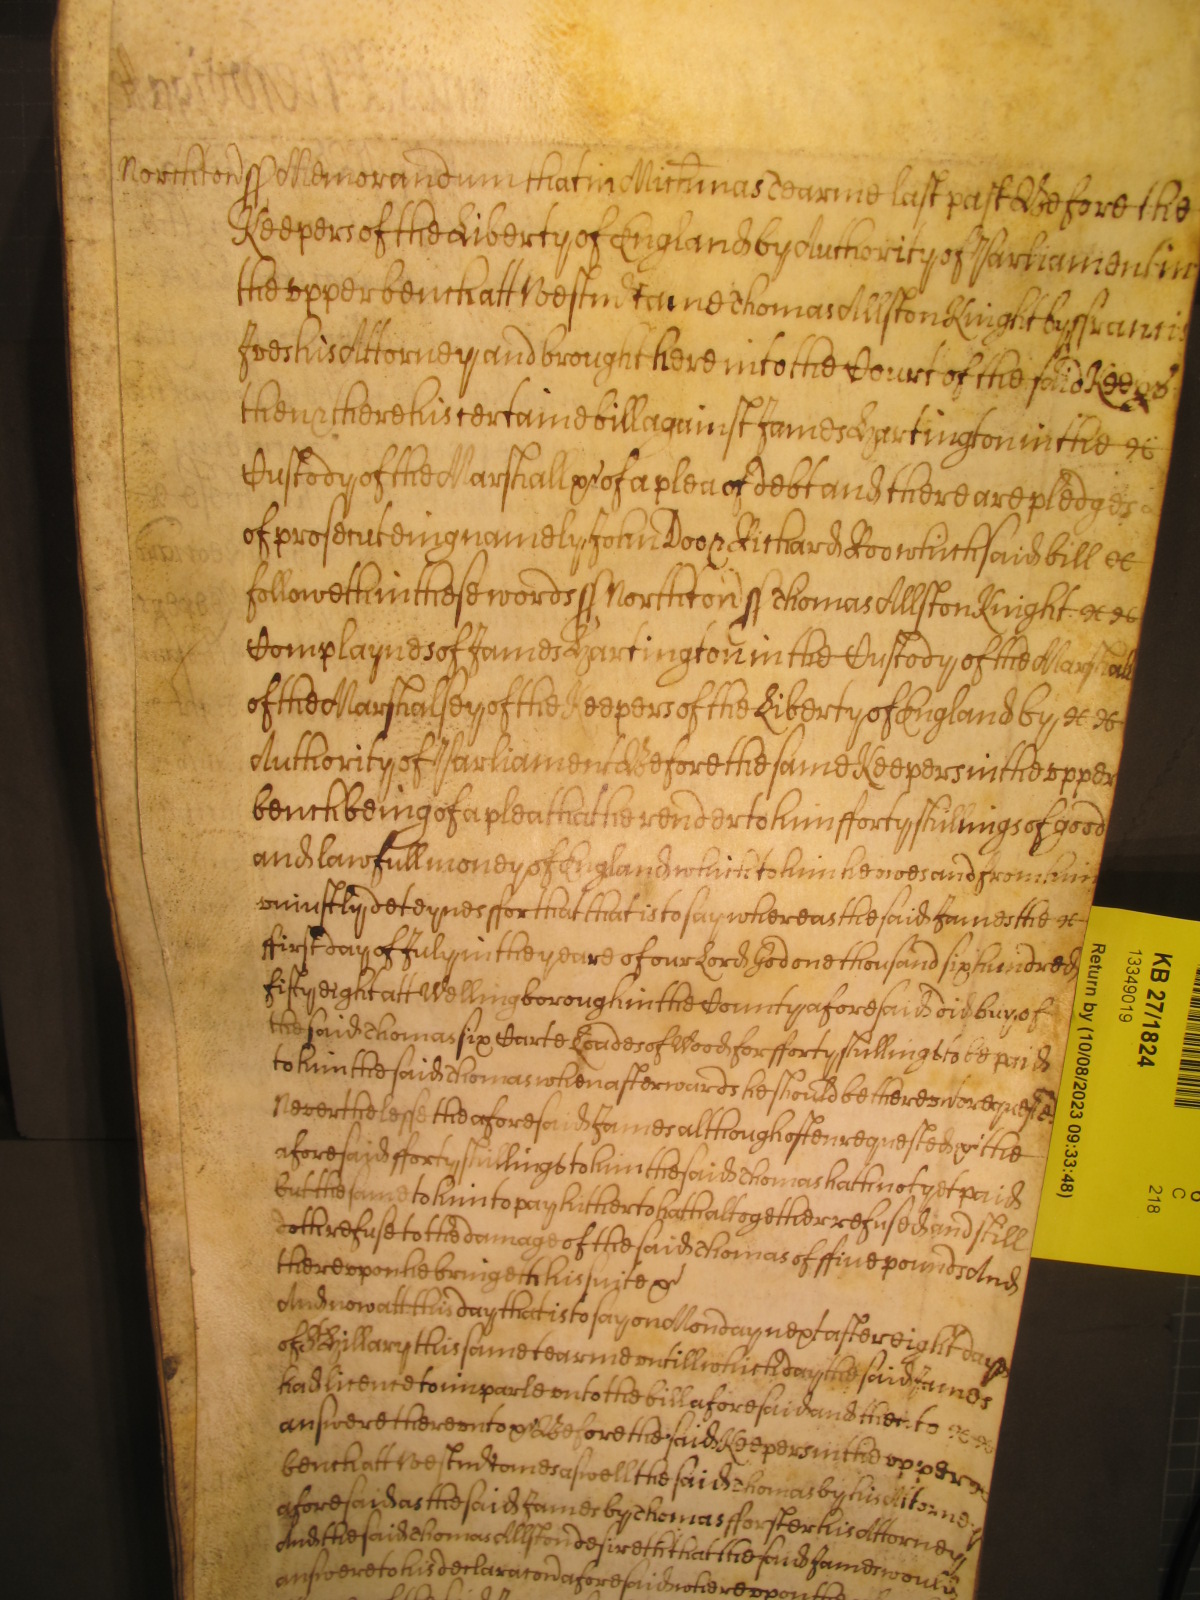 Northton ss Memorandum that in Mich'mas Tearme last past Before the
Keepers of the Liberty of England by Authority of Parliament in
the vpper bench att Westm'r came Thomas Allston Knight by ffrancis
Ives his Attorney and brought here into the Court of the said Keep'rs
then & there his certaine bill against James Hartington in the &c
Custody of the Marshall &c of a plea of debt and there are pledges
of prosecuteing namely John Doo & Richard Roo which said bill &c
followeth in these words ss Northton ss Thomas Allston Knight &c &c
Complaynes of James Hartington in the Custody of the Marshall
of the Marshalsey of the Keepers of the Liberty of England by &c &c
Authority of Parliament Before the same Keepers in the vpper
bench being of a plea that he render to him fforty shillings of good
and lawfull money of England which to him he owes and from him
vniustly deteynes ffor that that is to say whereas the said James the &c
ffirst day of July in the yeare of our Lord God one thousand six hundred
fifty eight att Wellingborough in the County aforesaid did buy of
the said Thomas six Carte Loades of Wood for fforty shillings to be paid
to him the said Thomas when afterwards he should be therevnto requested
Neverthelesse the aforesaid James although often requested &c the
aforesaid fforty shillings to him the said Thomas hath not yet paid
but the same to him to pay hitherto hath altogether refused and still
doth refuse to the damage of the said Thomas of ffiue pounds And
therevpon he bringeth his suite &c
And now att this day that is to say on Monday next after eight dayes
of St Hillary this same tearme vntill which day the said James
had licence to imparle vnto the bill aforesaid and then to &c &c
answere therevnto &c Before the said Keepers in the vpper
bench att Westm'r comes aswell the said Thomas by his Attorney
aforesaid as the said James by Thomas fforster his Attorney
And the said Thomas Allston desireth that the said James would
answere to his declaracon aforesaid wherevpon the
KB 27/1824
13349019
Return by (10/08/2023 09:33:48)
C
218